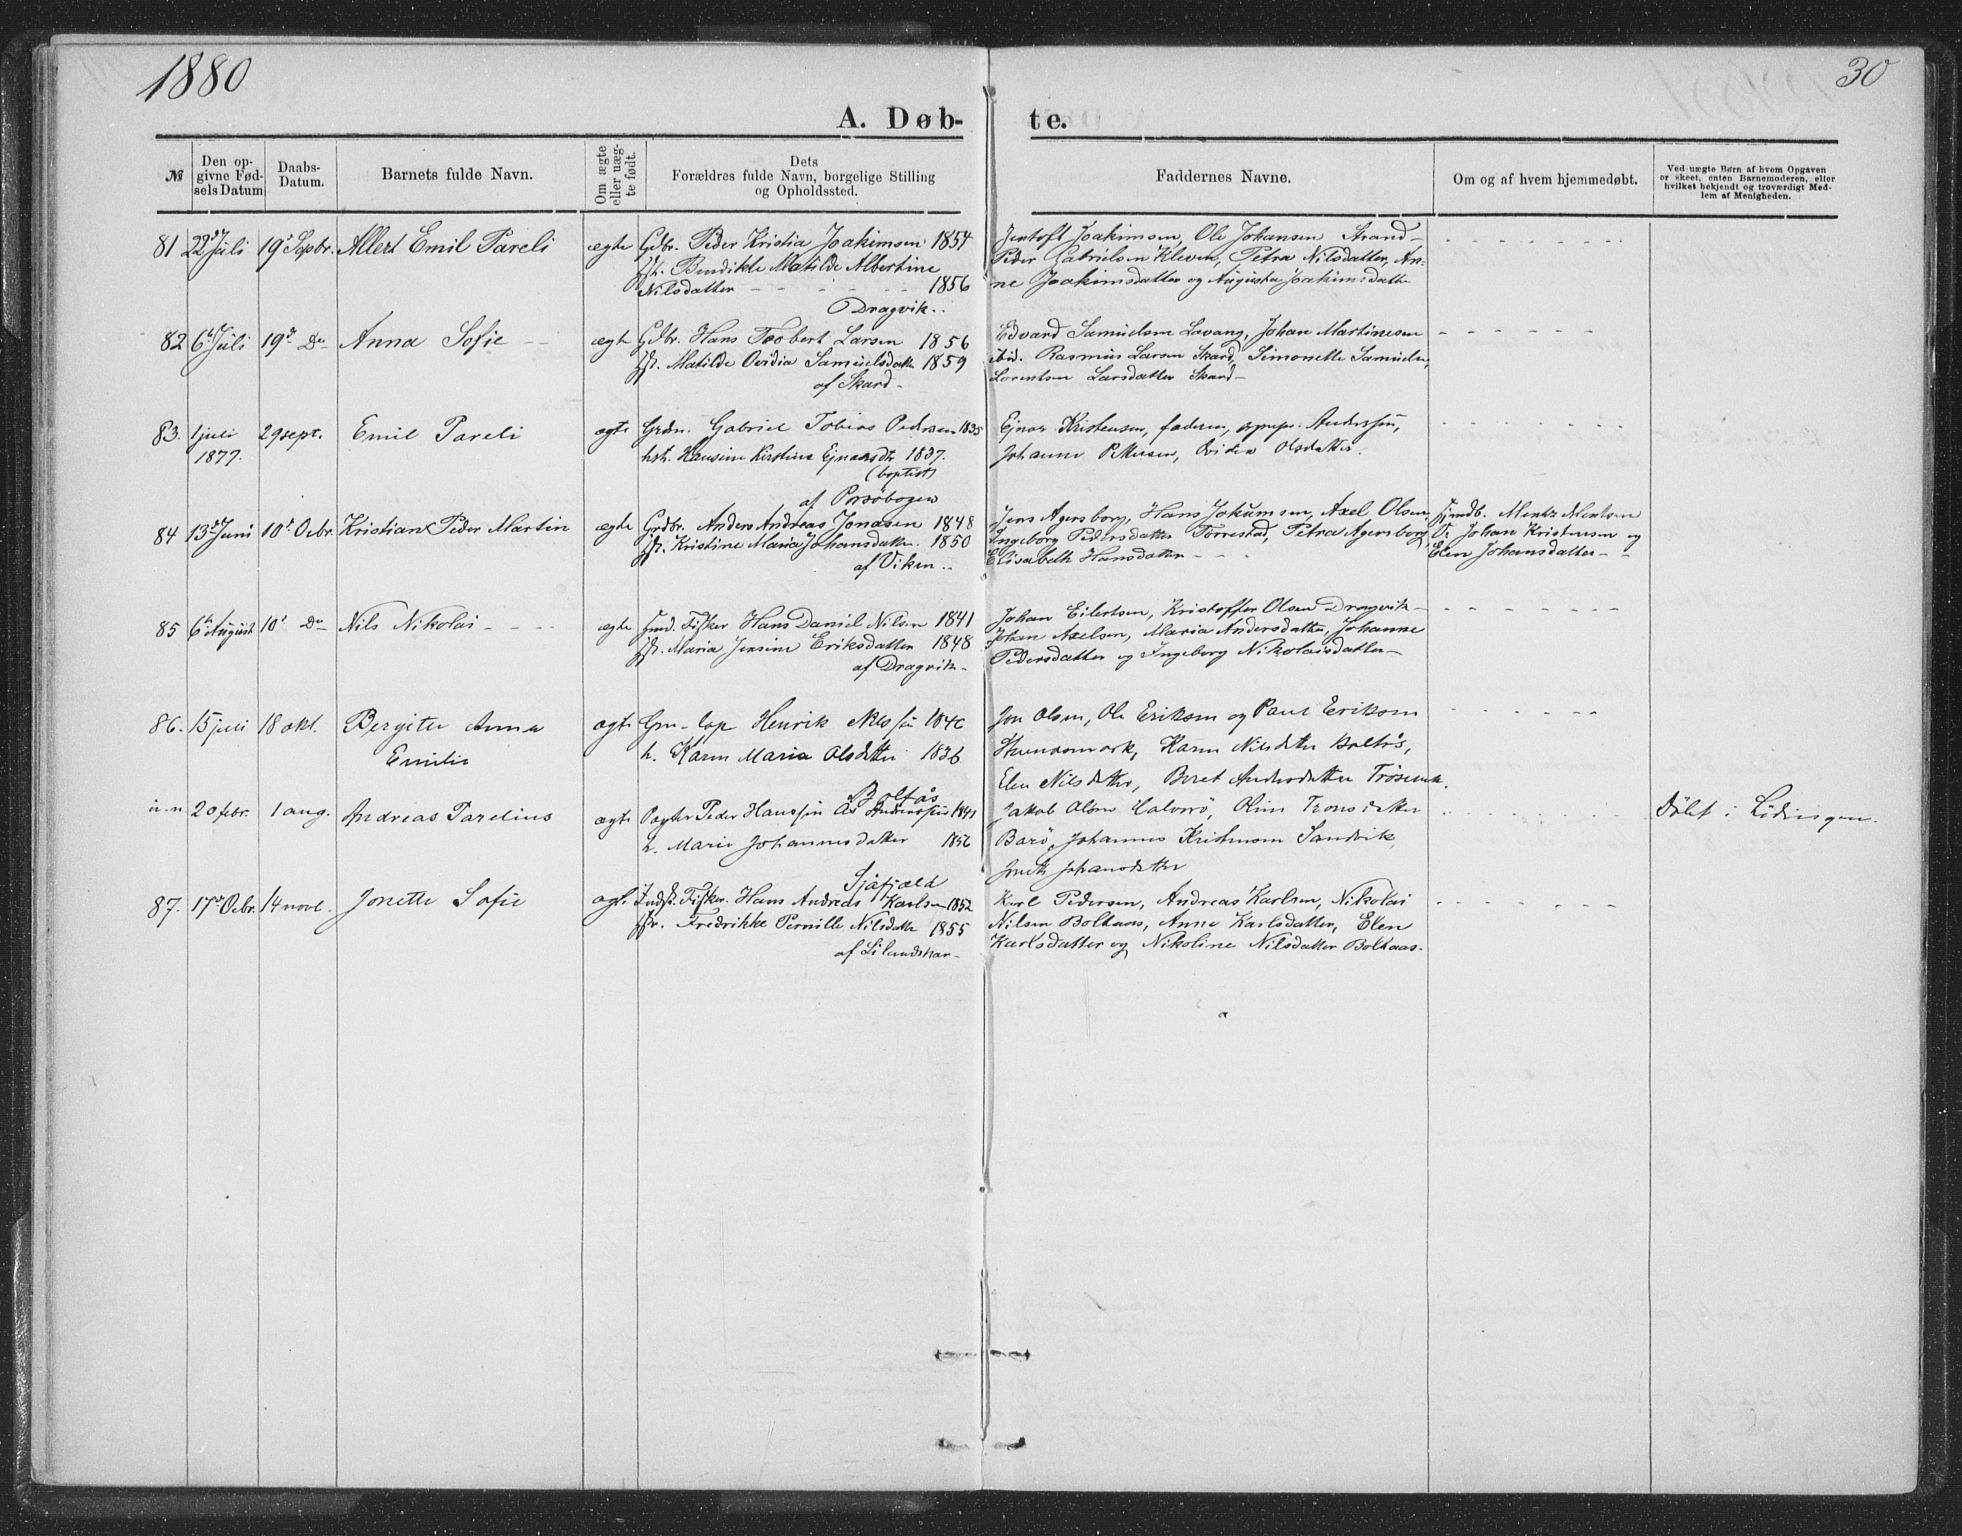 1880
30
A. Døb-te.
№
Den op-
givne Fød-
sels Datum
Daabs-
Datum.
Barnets fulde Navn.
Om ægte
eller uæg-
te født.
Dets
Forældres fulde Navn, borgelige Stilling
og Opholdssted.
Faddernes Navne.
Om og af hvem hjemmedøbt.
Ved uægte Børn af hvem Opgaven
er skeet, enten Barnemoderen, eller
hvilket bekjendt og troværdigt Med-
lem af Menigheden.
81 22d Juli 19d Sepbr. Albert Emil Pareli ægte Gdbr. Peder Kristia Joakimsen 1854
Hst. Bendikte Matilde Albertine
Nilsdatter 1856
Dragvik.
Jentoft Joakimsen, Ole Johansen Strand-
Peder Gabrielsen Kleven, Petra Nilsdatter, An-
ne Joakimsdatter og Augusta Joakimsdatter
82 6te Juli 19d Do Anna Sofie ægte Gdbr. Hans Torbert Larsen 1856
Hst. Matilde Ovidia Samuelsdatter 1859
af Skard-
Edvard Samuelsen Lavang, Johan Martinesen
ibid. Rasmus Larsen Skard, Simonette Samuelsd,
Lorentsen Larsdatter Skard-
83. 1 juli
1877. 29 sept. Emil Pareli ægte Grdn. Gabriel Tobias Pedersen 1835
hst. Hansine Kirstina Ejnarsdtr 1837.
(baptist)
af Porsöbogen
Ejnar Kristensen, faderen, Andersen,
Johanne Pettersen, Ovidia Olsdatter.
84 13d Juni 10d Ocbr. Kristian Peder Martin ægte Grdbr. Anders Andreas Jonasen 1848
Hst. Kristine Maria Johansdatter 1850
af Viken
Jens Agersborg, Hans Jokumsen, Axel Olsen,
Ingeborg Pedersdatter Torrestad, Petra Agersborg,
Elisabeth Hansdatter
Hjmdb. Mentz Mentsen
V: Johan Kristensen og
Elen Johansdatter
85 6te August 10d Do Nils Nikolai ægte Inds. Fisker Hans Daniel Nilsen 1841
Hst. Maria Jensine Eriksdatter 1848
af Dragvik-
Johan Eilertsen, Kristoffer Olsen Dragvik-
Johan Axelsen, Maria Andersdatter, Johanne
Pedersdatter og Ingeborg Nikolaisdatter-
86. 15 juli 18 okt. Bergitte Anna
Emilie ægte Henrik Nilssen 1840
h. Karen Maria Olsdatter 1836
Boltås
Jon Olsen, Ole Eriksen og Paul Eriksen
Karen Nilsdatter Boltås,
Elen Nilsdatter, Beret Andersdatter
u. n. 20 febr. 1 aug. Andreas Parelius ægte Pagter Peder Hanssen 1841
h. Marie Johannesdatter 1856
Sjafjæld
Jakob Olsen Halvarö, Oline Tronsdatter
Barö, Johannes Kristensen Sandvik,
Johansdatter
Döbt i Lödingen.
87. 17d Ocbr. 14 novb. Jonette Sofie ægt. Indst. Fisker. Hans Andreas Karlsen 1852
Hst. Fredrikke Pernille Nilsdatter 1855
af Lilandskar-
Karl Pedersen, Andreas Karlsen, Nikolai
Nilsen Boltaas, Anne Karlsdatter, Elen
Karlsdatter og Nikoline Nilsdatter Boltaas-